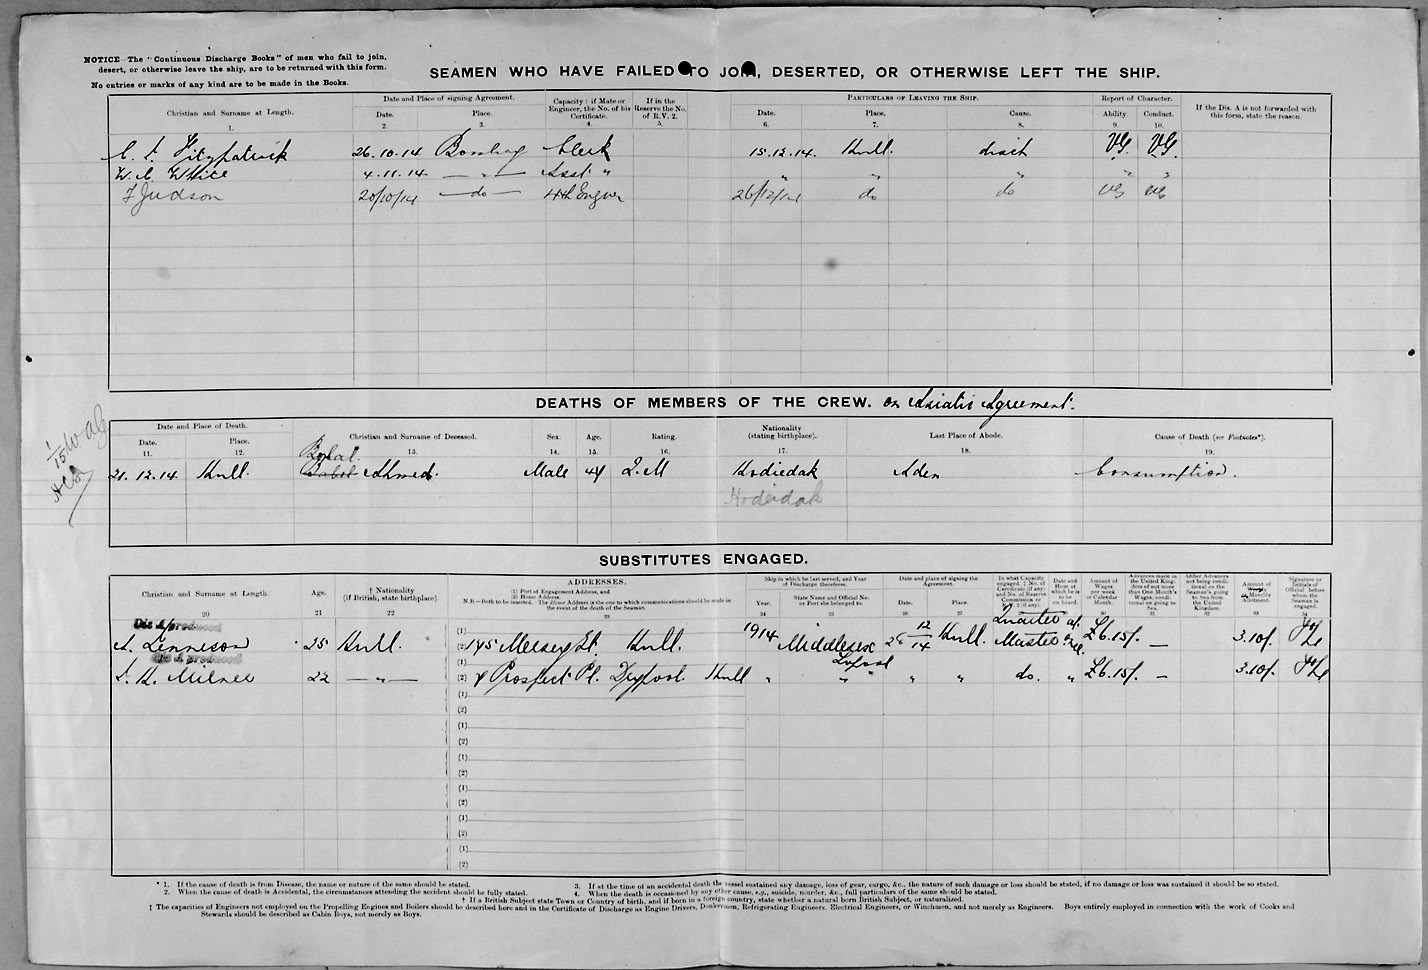 NOTICE—The "Continuous Discharge Books" of men who fail to join,
desert, or otherwise leave the ship, are to be returned with this form.
No entries or marks of any kind are to be made in the Books.
SEAMEN WHO HAVE FAILED TO JOIN, DESERTED, OR OTHERWISE LEFT THE SHIP.
Christian and Surname at Length. 1.
Date and Place of signing Agreement.
Date. 2. Place. 3.
Capacity: if Mate or Engineer, the No. of his Certificate. 4.
If in the Reserve the No. of R.V. 2. 5.
PARTICULARS OF LEAVING THE SHIP.
Date. 6. Place. 7. Cause. 8.
Report of Character.
Ability. 9. Conduct. 10.
If the Dis. A is not forwarded with this form, state the reason.
Fitzpatrick 26.10.14 Bombay Clerk 15.12.14. Hull. disch VG. VG.
W. A. White 4.11.14 — " — Asst " " " " " "
F Judson 20/10/14 — do — 4th Engnr 26/12/14 do do VG VG
DEATHS OF MEMBERS OF THE CREW. on Asiatic Agreement.
Date and Place of Death.
Date. 11. Place. 12.
Christian and Surname of Deceased. 13.
Sex. 14.
Age. 15.
Rating. 16.
Nationality (stating birthplace). 17.
Last Place of Abode. 18.
Cause of Death (see Footnotes*). 19.
21.12.14 Hull. Ahmed. Male 44 Q.M Hodiedah Aden Consumption.
Hodeidah
SUBSTITUTES ENGAGED.
Christian and Surname at Length. 20
Age. 21
† Nationality (if British, state birthplace). 22
ADDRESSES.
(1) Port of Engagement Address, and
(2) Home Address.
N.B.—Both to be inserted. The Home Address is the one to which communications should be made in the event of the death of the Seaman. 23
Ship in which he last served, and Year of Discharge therefrom.
Year. 24
State Name and Official No. or Port she belonged to. 25
Date and place of signing the Agreement.
Date. 26 Place. 27
In what Capacity engaged. ‡ No. of Certificate (if any) and No. of Reserve Commission or R.V. 2 (if any). 28
Date and Hour at which he is to be on board. 29
Amount of Wages per week or Calendar Month. 30
Advances made in the United Kingdom of not more than One Month's Wages, conditional on going to Sea. 31
Other Advances not being conditional on the Seaman's going to Sea from the United Kingdom. 32
Amount of Monthly Allotment. 33
Signature or Initials of Official before whom the Seaman is engaged. 34
Dis A produced
A. Lenneson 25 Hull. (1) (2) 145 Mersey St. Hull. 1914 Middlesex 26 12/14 Hull. Quarter Master £6.15/. — 3.10/.
Dis A. produced
Milner 22 — " — (1) (2) 4 Prospect Pl. Drypool Hull " " L'pool " " do. " £6.15/. — 3.10/.
(1)
(2)
(1)
(2)
(1)
(2)
(1)
(2)
(1)
(2)
(1)
(2)
* 1. If the cause of death is from Disease, the name or nature of the same should be stated.
2. When the cause of death is Accidental, the circumstances attending the accident should be fully stated.
3. If at the time of an accidental death the vessel sustained any damage, loss of gear, cargo, &c., the nature of such damage or loss should be stated, if no damage or loss was sustained it should be so stated.
4. When the death is occasioned by any other cause, e.g., suicide, murder, &c., full particulars of the same should be stated.
† If a British Subject state Town or Country of birth, and if born in a foreign country, state whether a natural born British Subject, or naturalized.
‡ The capacities of Engineers not employed on the Propelling Engines and Boilers should be described here and in the Certificate of Discharge as Engine Drivers, Donkeymen, Refrigerating Engineers, Electrical Engineers, or Winchmen, and not merely as Engineers. Boys entirely employed in connection with the work of Cooks and
Stewards should be described as Cabin Boys, not merely as Boys.